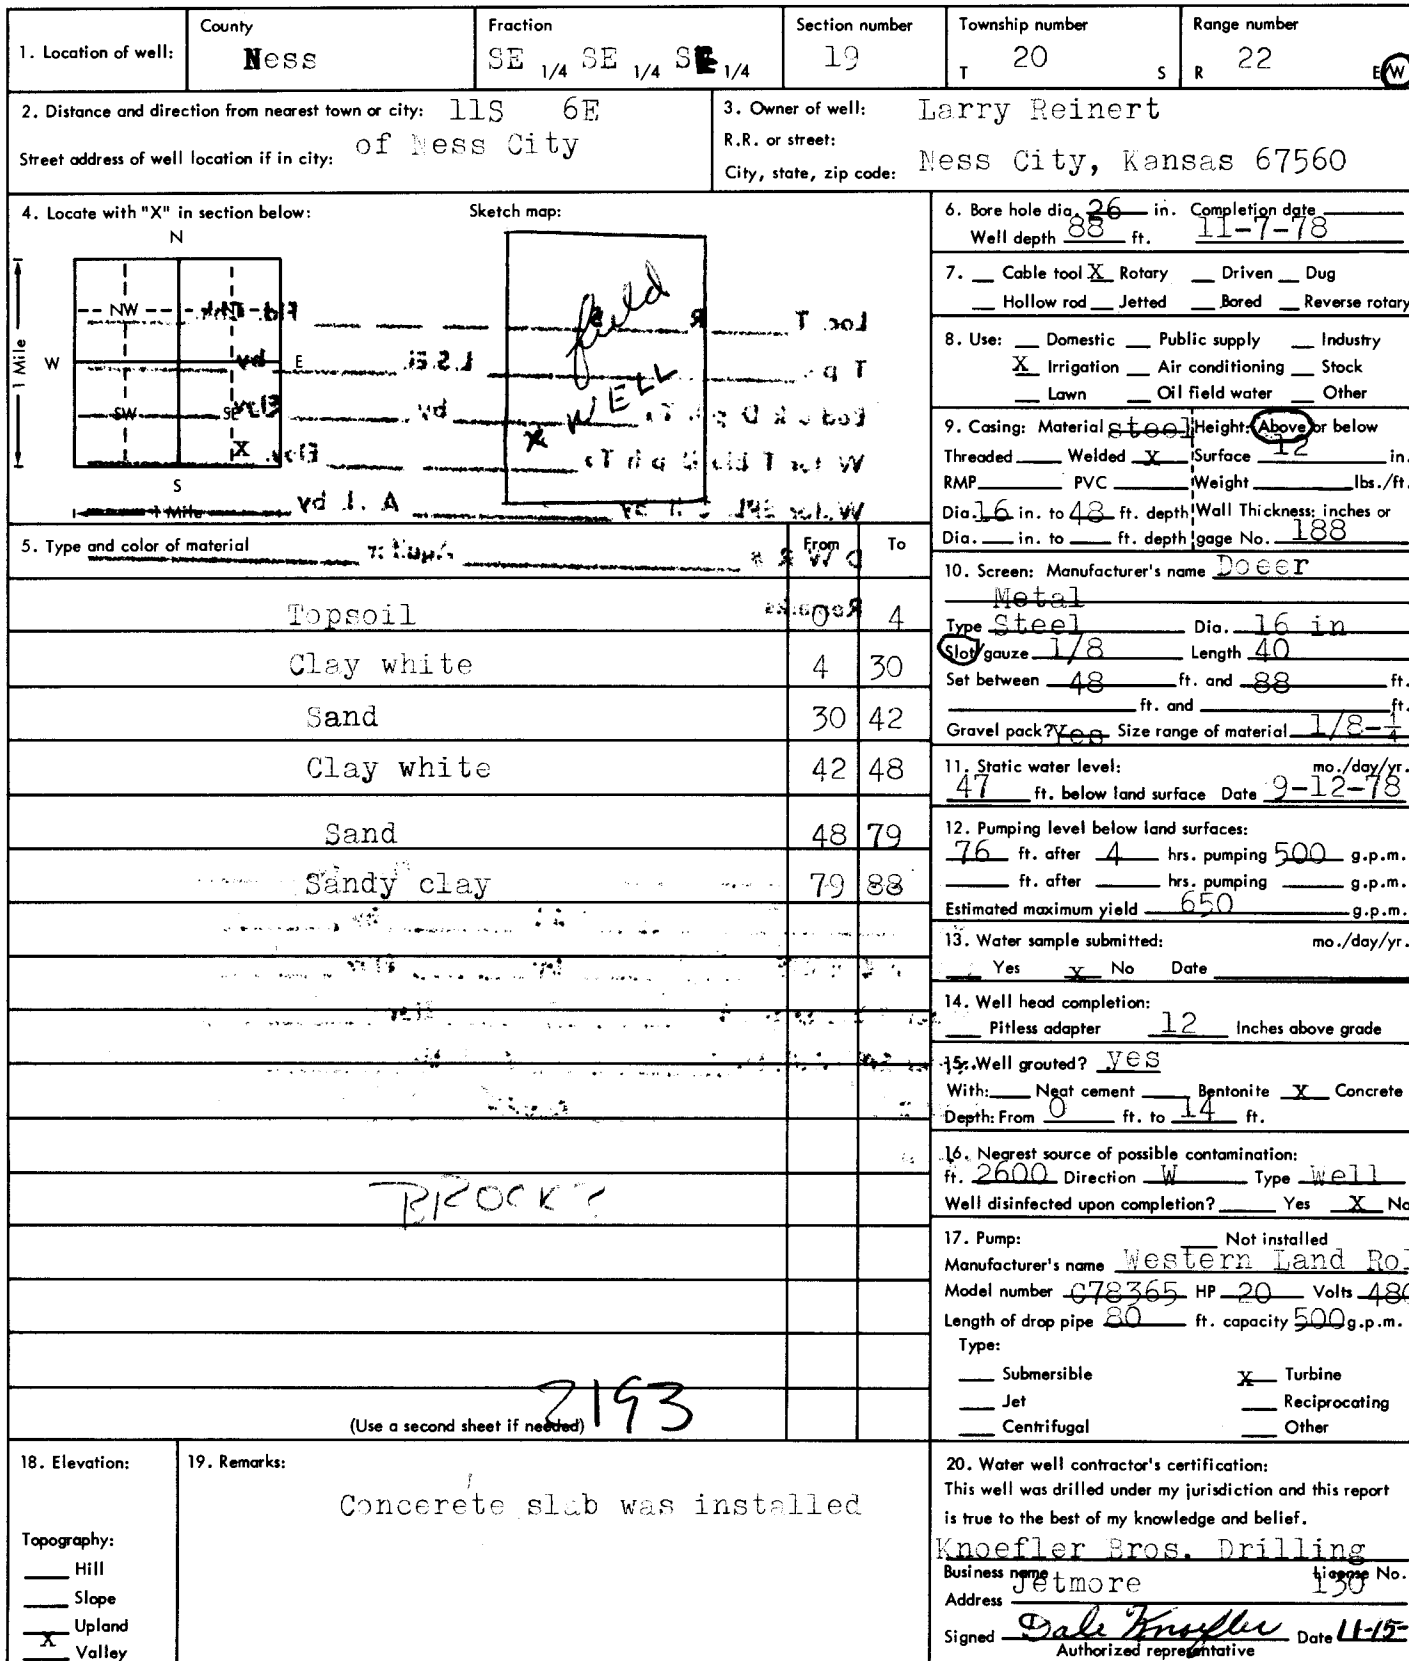 1. Location of well:
County
Ness
Fraction
SE 1/4 SE 1/4 SE 1/4
Section number
19
Township number
T 20 S
Range number
R 22 E W
2. Distance and direction from nearest town or city: 11S 6E
of Ness City
Street address of well location if in city:
3. Owner of well: Larry Reinert
R.R. or street:
City, state, zip code: Ness City, Kansas 67560
4. Locate with "X" in section below:
Sketch map:
N
NW
W
E
SW SE
X
S
1 Mile
1 Mile
field
X WELL
5. Type and color of material
From To
Topsoil 0 4
Clay white 4 30
Sand 30 42
Clay white 42 48
Sand 48 79
Sandy clay 79 88
2193
(Use a second sheet if needed)
6. Bore hole dia. 26 in. Completion date
Well depth 88 ft. 11-7-78
7. Cable tool X Rotary Driven Dug
Hollow rod Jetted Bored Reverse rotary
8. Use: Domestic Public supply Industry
X Irrigation Air conditioning Stock
Lawn Oil field water Other
9. Casing: Material steel Height: Above or below
Threaded Welded X Surface 12 in.
RMP PVC Weight lbs./ft.
Dia. 16 in. to 48 ft. depth Wall Thickness: inches or
Dia. in. to ft. depth gage No. 188
10. Screen: Manufacturer's name Doeer
Metal
Type Steel Dia. 16 in
Slot/gauze 1/8 Length 40
Set between 48 ft. and 88 ft.
ft. and ft.
Gravel pack? Yes Size range of material 1/8-1/4
11. Static water level: mo./day/yr.
47 ft. below land surface Date 9-12-78
12. Pumping level below land surfaces:
76 ft. after 4 hrs. pumping 500 g.p.m.
ft. after hrs. pumping g.p.m.
Estimated maximum yield 650 g.p.m.
13. Water sample submitted: mo./day/yr.
Yes X No Date
14. Well head completion:
Pitless adapter 12 Inches above grade
15. Well grouted? yes
With: Neat cement Bentonite X Concrete
Depth: From 0 ft. to 14 ft.
16. Nearest source of possible contamination:
ft. 2600 Direction W Type Well
Well disinfected upon completion? Yes X No
17. Pump: Not installed
Manufacturer's name Western Land Rol
Model number G78365 HP 20 Volts 480
Length of drop pipe 80 ft. capacity 500 g.p.m.
Type:
Submersible X Turbine
Jet Reciprocating
Centrifugal Other
18. Elevation:
Topography:
Hill
Slope
Upland
X Valley
19. Remarks:
Concerete slab was installed
20. Water well contractor's certification:
This well was drilled under my jurisdiction and this report
is true to the best of my knowledge and belief.
Knoefler Bros. Drilling
Business name License No.
Address Jetmore 130
Signed Dale Knoefler Date 11-15-
Authorized representative